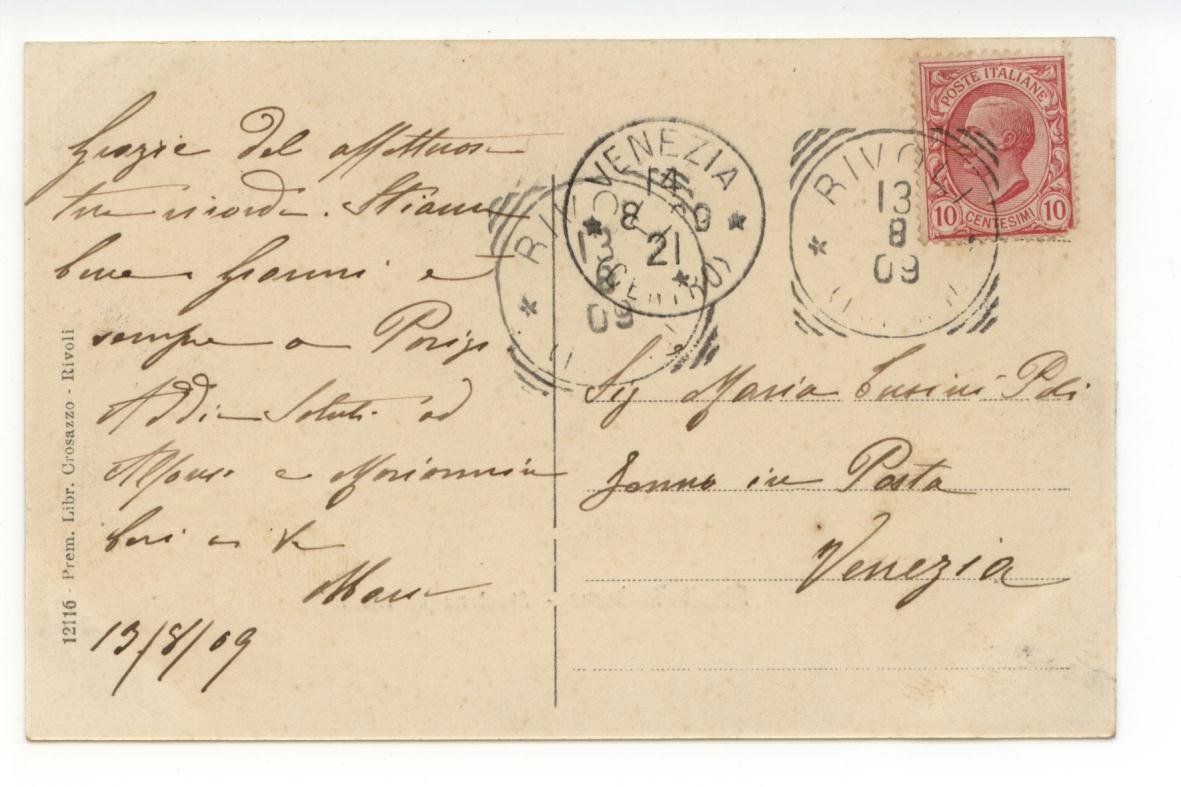 Grazie del affettuoso
tuo ricordo. Stiamo
bene Gianni e
sempre a Parigi
Addio Saluti ad
e
baci a te
13/8/09
12116 - Prem. Libr. Crosazzo - Rivoli
VENEZIA
14
8 09
21
(CENTRO)
RIVOLI
13
8
09
RIVOLI
13
8
09
POSTE ITALIANE
10 CENTESIMI 10
Sig Maria
Fermo in Posta
Venezia